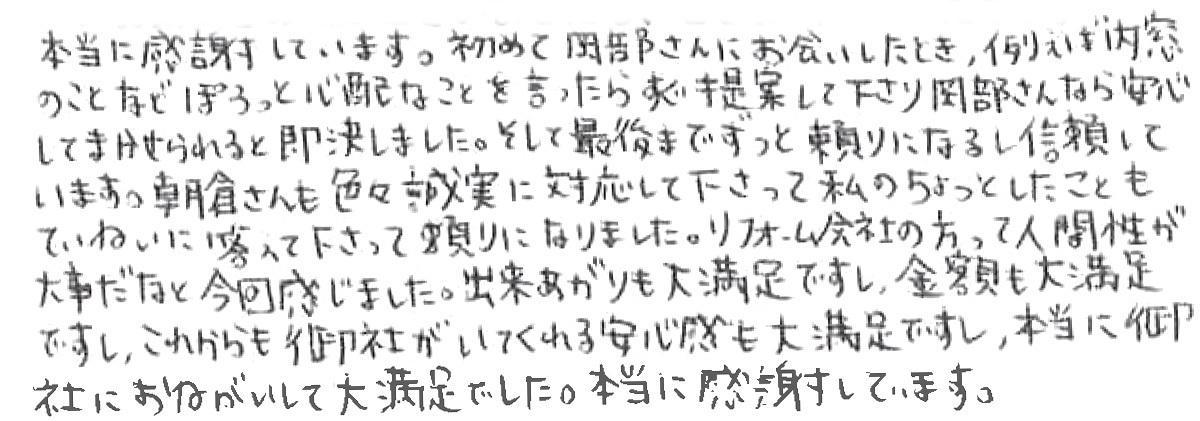 本当に感謝しています。初めて岡部さんにお会いしたとき,例えば内窓
のことなどぽろっと心配なことを言ったらすぐ提案して下さり岡部さんなら安心
してまかせられると即決しました。そして最後までずっと頼りになるし信頼して
います。朝倉さんも色々誠実に対応して下さって私のちょっとしたことも
ていねいに答えて下さって頼りになりました。リフォーム会社の方って人間性が
大事だなと今回感じました。出来あがりも大満足ですし,金額も大満足
ですし,これからも御社がいてくれる安心感も大満足ですし,本当に御
社におねがいして大満足でした。本当に感謝しています。